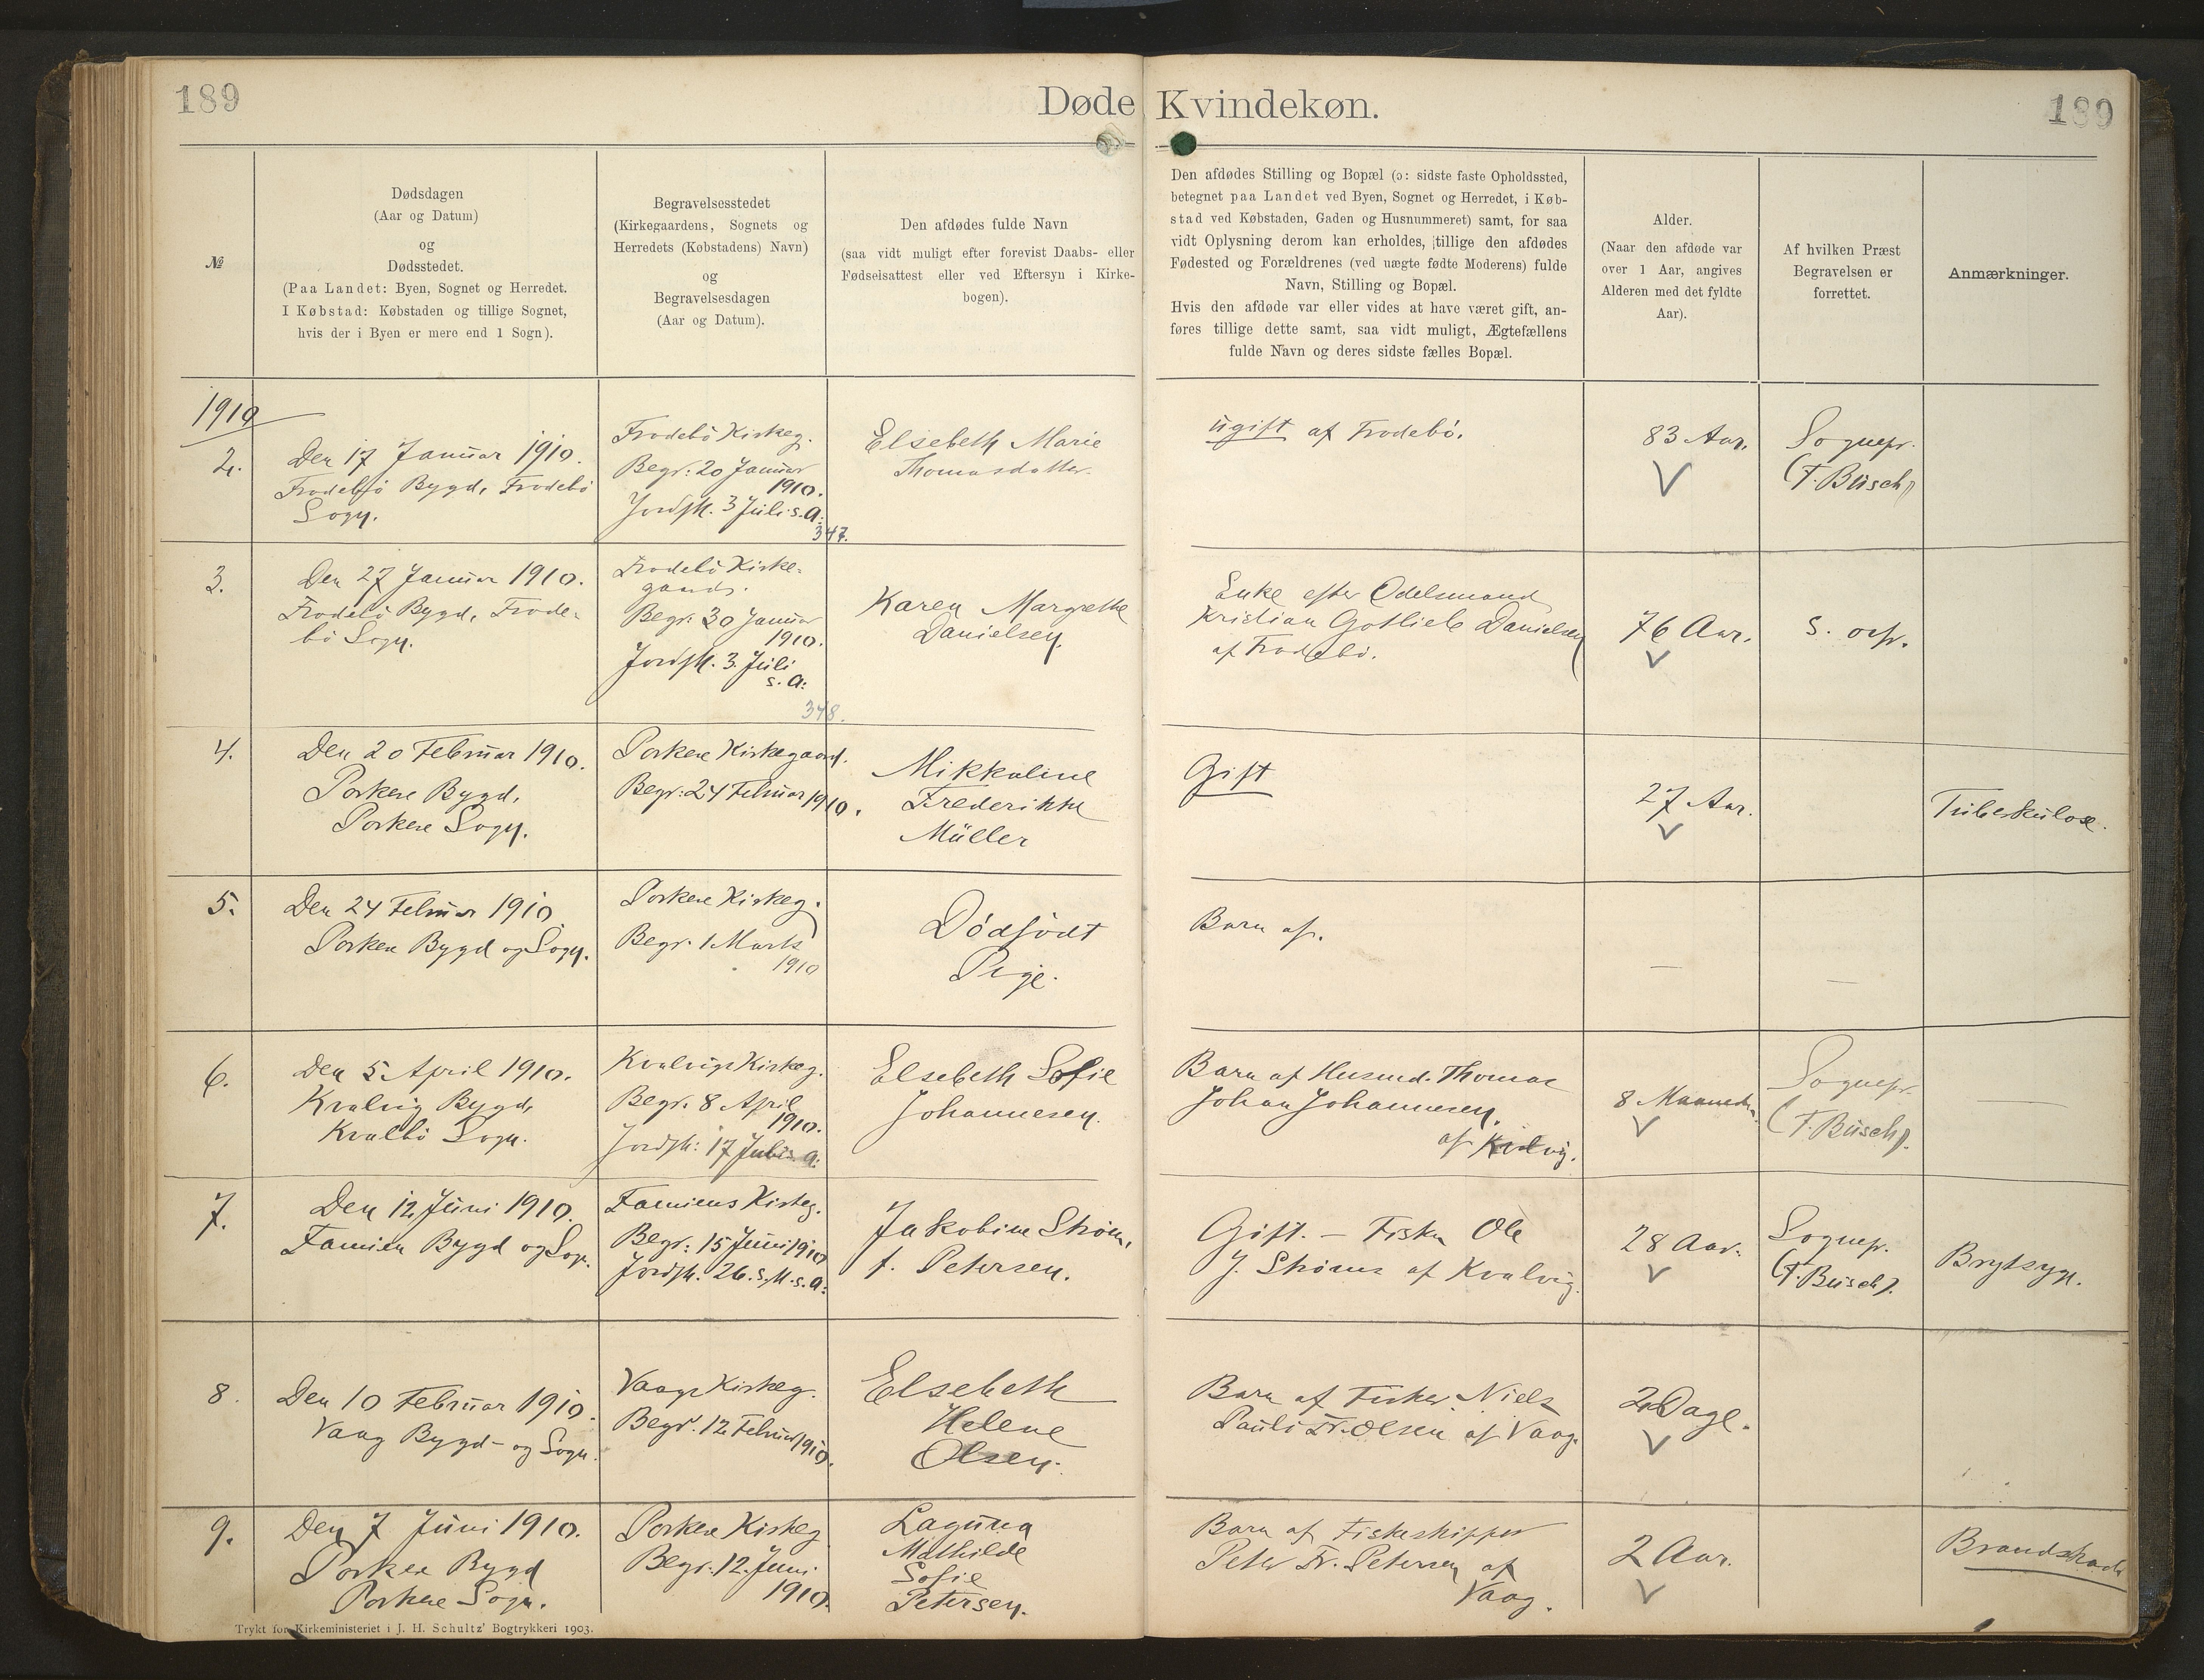 189
Døde Kvindekøn.
189
№
Dødsdagen
(Aar og Datum)
og
Dødsstedet.
(Paa Landet: Byen, Sognet og Herredet.
I Købstad: Købstaden og tillige Sognet,
hvis der i Byen er mere end 1 Sogn).
Begravelsesstedet
(Kirkegaardens, Sognets og
Herredets (Købstadens) Navn)
og
Begravelsesdagen
(Aar og Datum).
Den afdødes fulde Navn
(saa vidt muligt efter forevist Daabs- eller
Fødselsattest eller ved Eftersyn i Kirke-
bogen).
Den afdødes Stilling og Bopæl (ɔ: sidste faste Opholdssted,
betegnet paa Landet ved Byen, Sognet og Herredet, i Køb-
stad ved Købstaden, Gaden og Husnummeret) samt, for saa
vidt Oplysning derom kan erholdes, tillige den afdødes
Fødested og Forældrenes (ved uægte fødte Moderens) fulde
Navn, Stilling og Bopæl.
Hvis den afdøde var eller vides at have været gift, an-
føres tillige dette samt, saa vidt muligt, Ægtefællens
fulde Navn og deres sidste fælles Bopæl.
Alder.
(Naar den afdøde var
over 1 Aar, angives
Alderen med det fyldte
Aar).
Af hvilken Præst
Begravelsen er
forrettet.
Anmærkninger.
1910
2.
Den 17 Januar 1910.
Frodebø Bygd, Frodebø
Sogn.
Frodebø Kirkeg.
Begr: 20 Januar
1910.
Jordfk. 3 Juli s. A:
347.
Elsebeth Marie
Thomasdatter.
ugift af Frodebø.
83 Aar.
Sognepr.
(F. Busch)
3.
Den 27 Januar 1910.
Frodebø Bygd, Frode-
bø Sogn.
Frodebø Kirke-
gaard.
Begr: 30 Januar
1910.
Jordfk. 3. Juli
s. A:
348.
Karen Margrethe
Danielsen.
Enke efter Odelsmand
Kristian Gotlieb Danielsen
af Frodebø.
76 Aar.
S. osfr.
4.
Den 20 Februar 1910.
Porkere Bygd,
Porkere Sogn.
Porkere Kirkegaard.
Begr: 24 Februar 1910.
Mikkaline
Frederikke
Müller
Gift
27 Aar.
Tuberkulose.
5.
Den 24 Februar 1910
Porkere Bygd og Sogn.
Porkere Kirkeg.
Begr. 1 Marts
1910
Dødfødt
Pige.
Barn af.
6.
Den 5 April 1910.
Kvalvig Bygd,
Kvalbø Sogn.
Kvalvigs Kirkeg.
Begr. 8 April
1910.
Jordfk: 17 Juli s. A:
Elsebeth Sofie
Johannesen.
Barn af Husmd. Thomas
Johan Johannesen,
af Kvalvig.
8 Maaneder
Sognepr.
(F. Busch).
7.
Den 12 Juni 1910.
Famien Bygd og Sogn.
Famiens Kirkeg.
Begr: 15 Juni 1910
Jordfk: 26. s. M. s. A:
Jakobine Strøm,
f. Petersen.
Gift. - Fisker Ole
J. Strøms af Kvalvig.
28 Aar.
Sognepr.
(F. Busch).
Brystsyg.
8.
Den 10 Februar 1910.
Vaag Bygd- og Sogn.
Vaags Kirkeg.
Begr. 12 Februar 1910.
Elsebeth
Helene
Olsen.
Barn af Fisker Niels
Pauli Fr. Olsen af Vaag.
Dage.
9.
Den 7 Juni 1910.
Porkere Bygd
Porkere Sogn.
Porkere Kirkeg
Begr: 12. Juni
1910.
Laguna
Mathilde
Sofie
Petersen.
Barn af Fiskeskipper
Peter Fr. Petersen af
Vaag.
2 Aar.
Brandskade
Trykt for Kirkeministeriet i J. H. Schultz' Bogtrykkeri 1903.